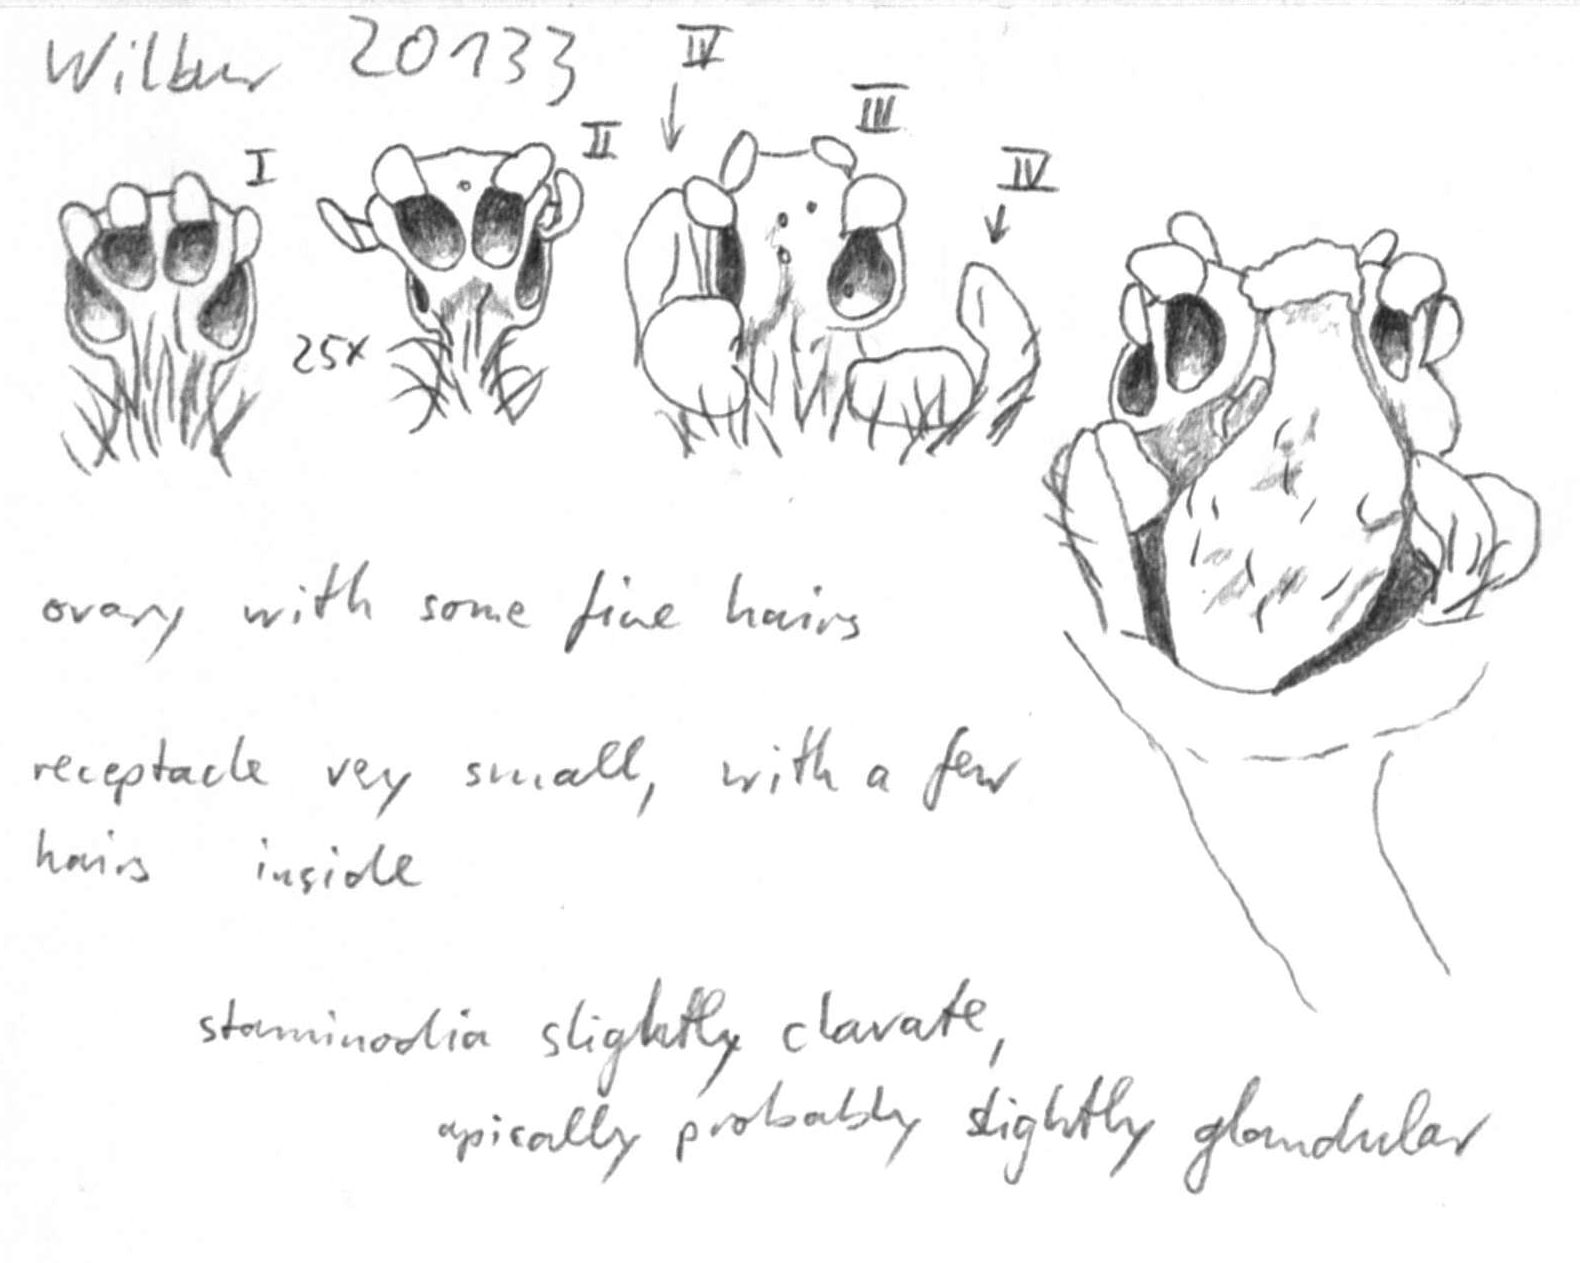 Wilbur 20133
IV
III
II
I
IV
25x
ovary with some fine hairs
receptacle very small, with a few
hairs inside
staminodia slightly clavate,
apically probably slightly glandular